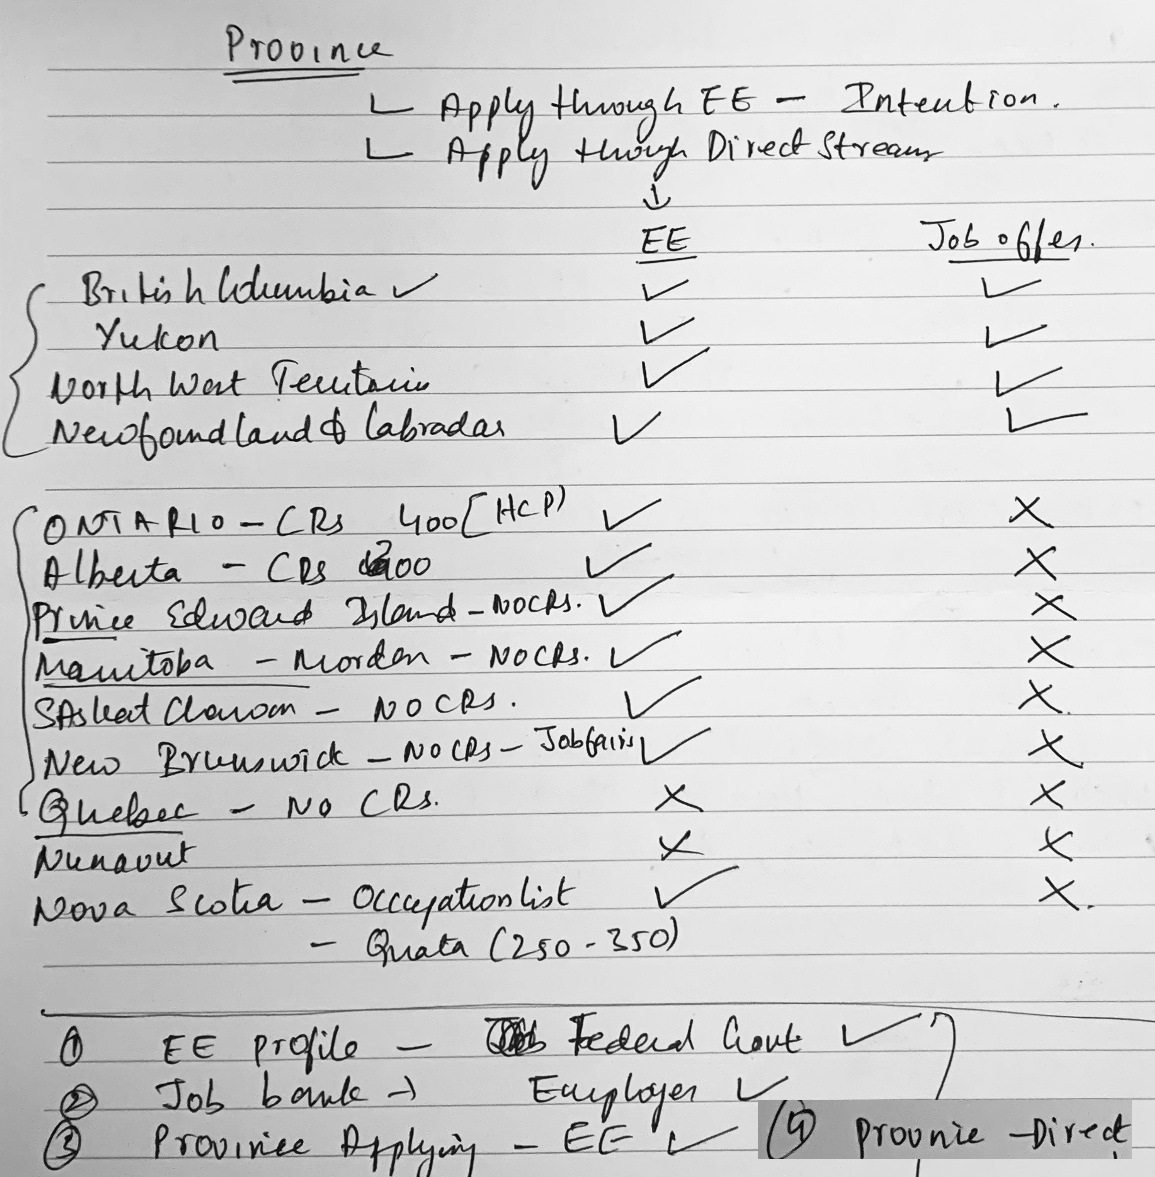 Province
Apply through EE - Intention.
Apply though Direct Stream
↓
EE Job offer.
British Columbia ✓ ✓ ✓
Yukon ✓ ✓
North West Territories ✓ ✓
Newfoundland & Labrador ✓ ✓
ONTARIO - CRS 400 [HCP) ✓ X
Alberta - CRS 300 ✓ X
Prince Edward Island - NO CRS. ✓ X
Manitoba - Morden - NO CRS. ✓ X
SAskatchewan - NO CRS. ✓ X
New Brunswick - NO CRS - Job fairs ✓ X
Quebec - NO CRS. X X
Nunavut X X
Nova Scotia - Occupation list ✓ X.
- Quata (250 - 350)
① EE profile - Federal Govt ✓
② Job bank → Employer ✓
③ Province Applying - EE ✓ ④ Provnie - Direct